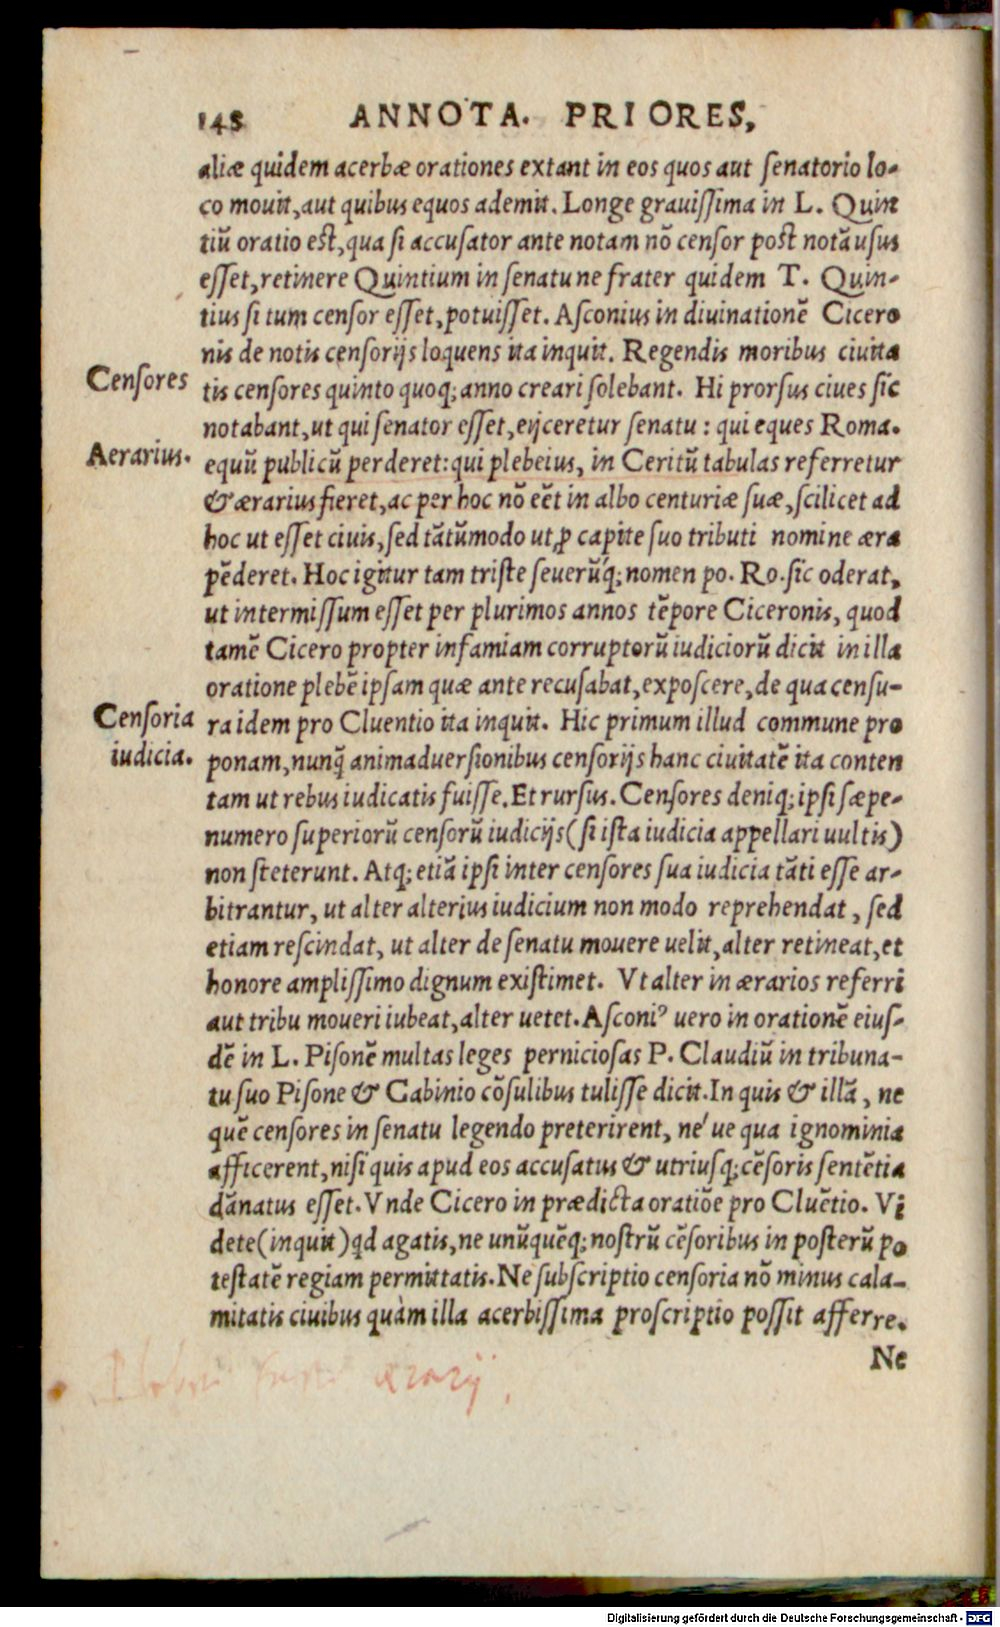 148 ANNOTA. PRIORES,
aliæ quidem acerbæ orationes extant in eos quos aut ſenatorio lo-
co mouit, aut quibus equos ademit. Longe grauiſſima in L. Quin
tiũ oratio eſt, qua ſi accuſator ante notam nõ cenſor poſt notã uſus
eſſet, retinere Quintium in ſenatu ne frater quidem T. Quin-
tius ſi tum cenſor eſſet, potuiſſet. Aſconius in diuinationẽ Cicero
nis de notis cenſorijs loquens ita inquit. Regendis moribus ciuita
Cenſores
tis cenſores quinto quoq; anno creari ſolebant. Hi prorſus ciues ſic
notabant, ut qui ſenator eſſet, eijceretur ſenatu: qui eques Roma.
Aerarius.
equũ publicũ perderet: qui plebeius, in Ceritũ tabulas referretur
& ærarius fieret, ac per hoc nõ eẽt in albo centuriæ ſuæ, ſcilicet ad
hoc ut eſſet ciuis, ſed tãtũmodo ut ꝓ capite ſuo tributi nomine æra
pẽderet. Hoc igitur tam triſte ſeuerũq́; nomen po. Ro. ſic oderat,
ut intermiſſum eſſet per plurimos annos tẽpore Ciceronis, quod
tamẽ Cicero propter infamiam corruptorũ iudiciorũ dicit in illa
oratione plebẽ ipſam quæ ante recuſabat, expoſcere, de qua cenſu-
Cenſoria
ra idem pro Cluentio ita inquit. Hic primum illud commune pro
iudicia.
ponam, nunq̃ animaduerſionibus cenſorijs hanc ciuitatẽ ita conten
tam ut rebus iudicatis fuiſſe. Et rurſus. Cenſores deniq; ipſi ſæpe-
numero ſuperiorũ cenſorũ iudicijs (ſi iſta iudicia appellari uultis)
non ſteterunt. Atq; etiã ipſi inter cenſores ſua iudicia tãti eſſe ar-
bitrantur, ut alter alterius iudicium non modo reprehendat, ſed
etiam reſcindat, ut alter de ſenatu mouere uelit, alter retineat, et
honore ampliſſimo dignum exiſtimet. Vt alter in ærarios referri
aut tribu moueri iubeat, alter uetet. Aſconiꝰ uero in orationẽ eiuſ-
dẽ in L. Piſonẽ multas leges pernicioſas P. Claudiũ in tribuna-
tu ſuo Piſone & Gabinio cõſulibus tuliſſe dicit. In quis & illã, ne
quẽ cenſores in ſenatu legendo preterirent, né ue qua ignominia
afficerent, niſi quis apud eos accuſatus & utriuſq; cẽſoris ſentẽtia
dãnatus eſſet. Vnde Cicero in prædicta oratiõe pro Cluẽtio. Vi
dete (inquit) qd agatis, ne unũquẽq; noſtrũ cẽſoribus in poſterũ po
teſtatẽ regiam permittatis. Ne ſubſcriptio cenſoria nõ minus cala-
mitatis ciuibus quàm illa acerbiſſima proſcriptio poſſit afferre.
Ne
ærarij,
Digitalisierung gefördert durch die Deutsche Forschungsgemeinschaft - DFG